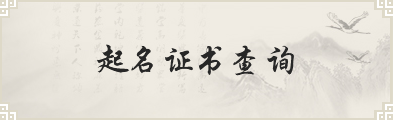 起名证书查询